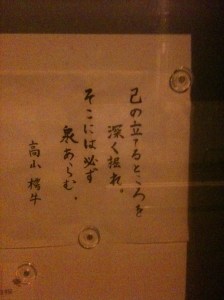 己の立てるところを
深く掘れ。
そこには必ず
泉あらむ。
高山樗牛